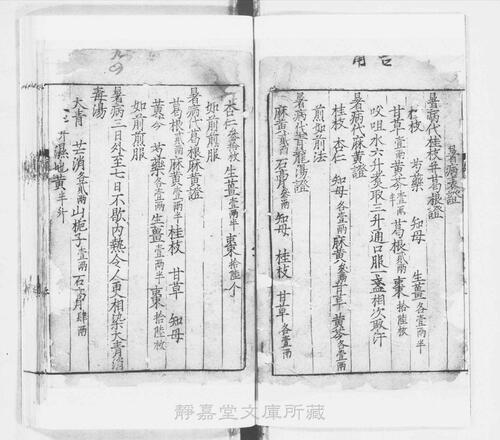 暑病表證
暑病代桂枝并葛根證
桂枝 芍藥 知母 生薑各壹兩半
甘草壹兩 黃芩 葛根貳兩 棗拾陸枚
㕮咀水六升煮取三升通口服一盞相次取汗
暑病代麻黃證
桂枝 杏仁 知母各壹兩 麻黃 甘草 黃芩各壹兩
煎如前法
暑病代青龍湯證
麻黃 石膏 知母 桂枝 甘草各壹兩
杏仁 生薑壹兩半 棗拾陸个
如前煎服
暑病代葛根麻黃證
葛根貳兩 麻黃壹兩半 桂枝 甘草 知母
黃芩 芍藥各壹兩 生薑壹兩半 棗拾陸枚
如前煎服
暑病二日外至七日不歇內熱令人更相染大青消
毒湯
大青 芒消各貳兩 山梔子壹兩 石膏肆兩
升濕地黃半升
靜嘉堂文庫所藏